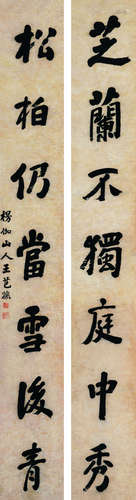 芝蘭不獨庭中秀
松柏仍當雪後青
楞伽山人王芑孫